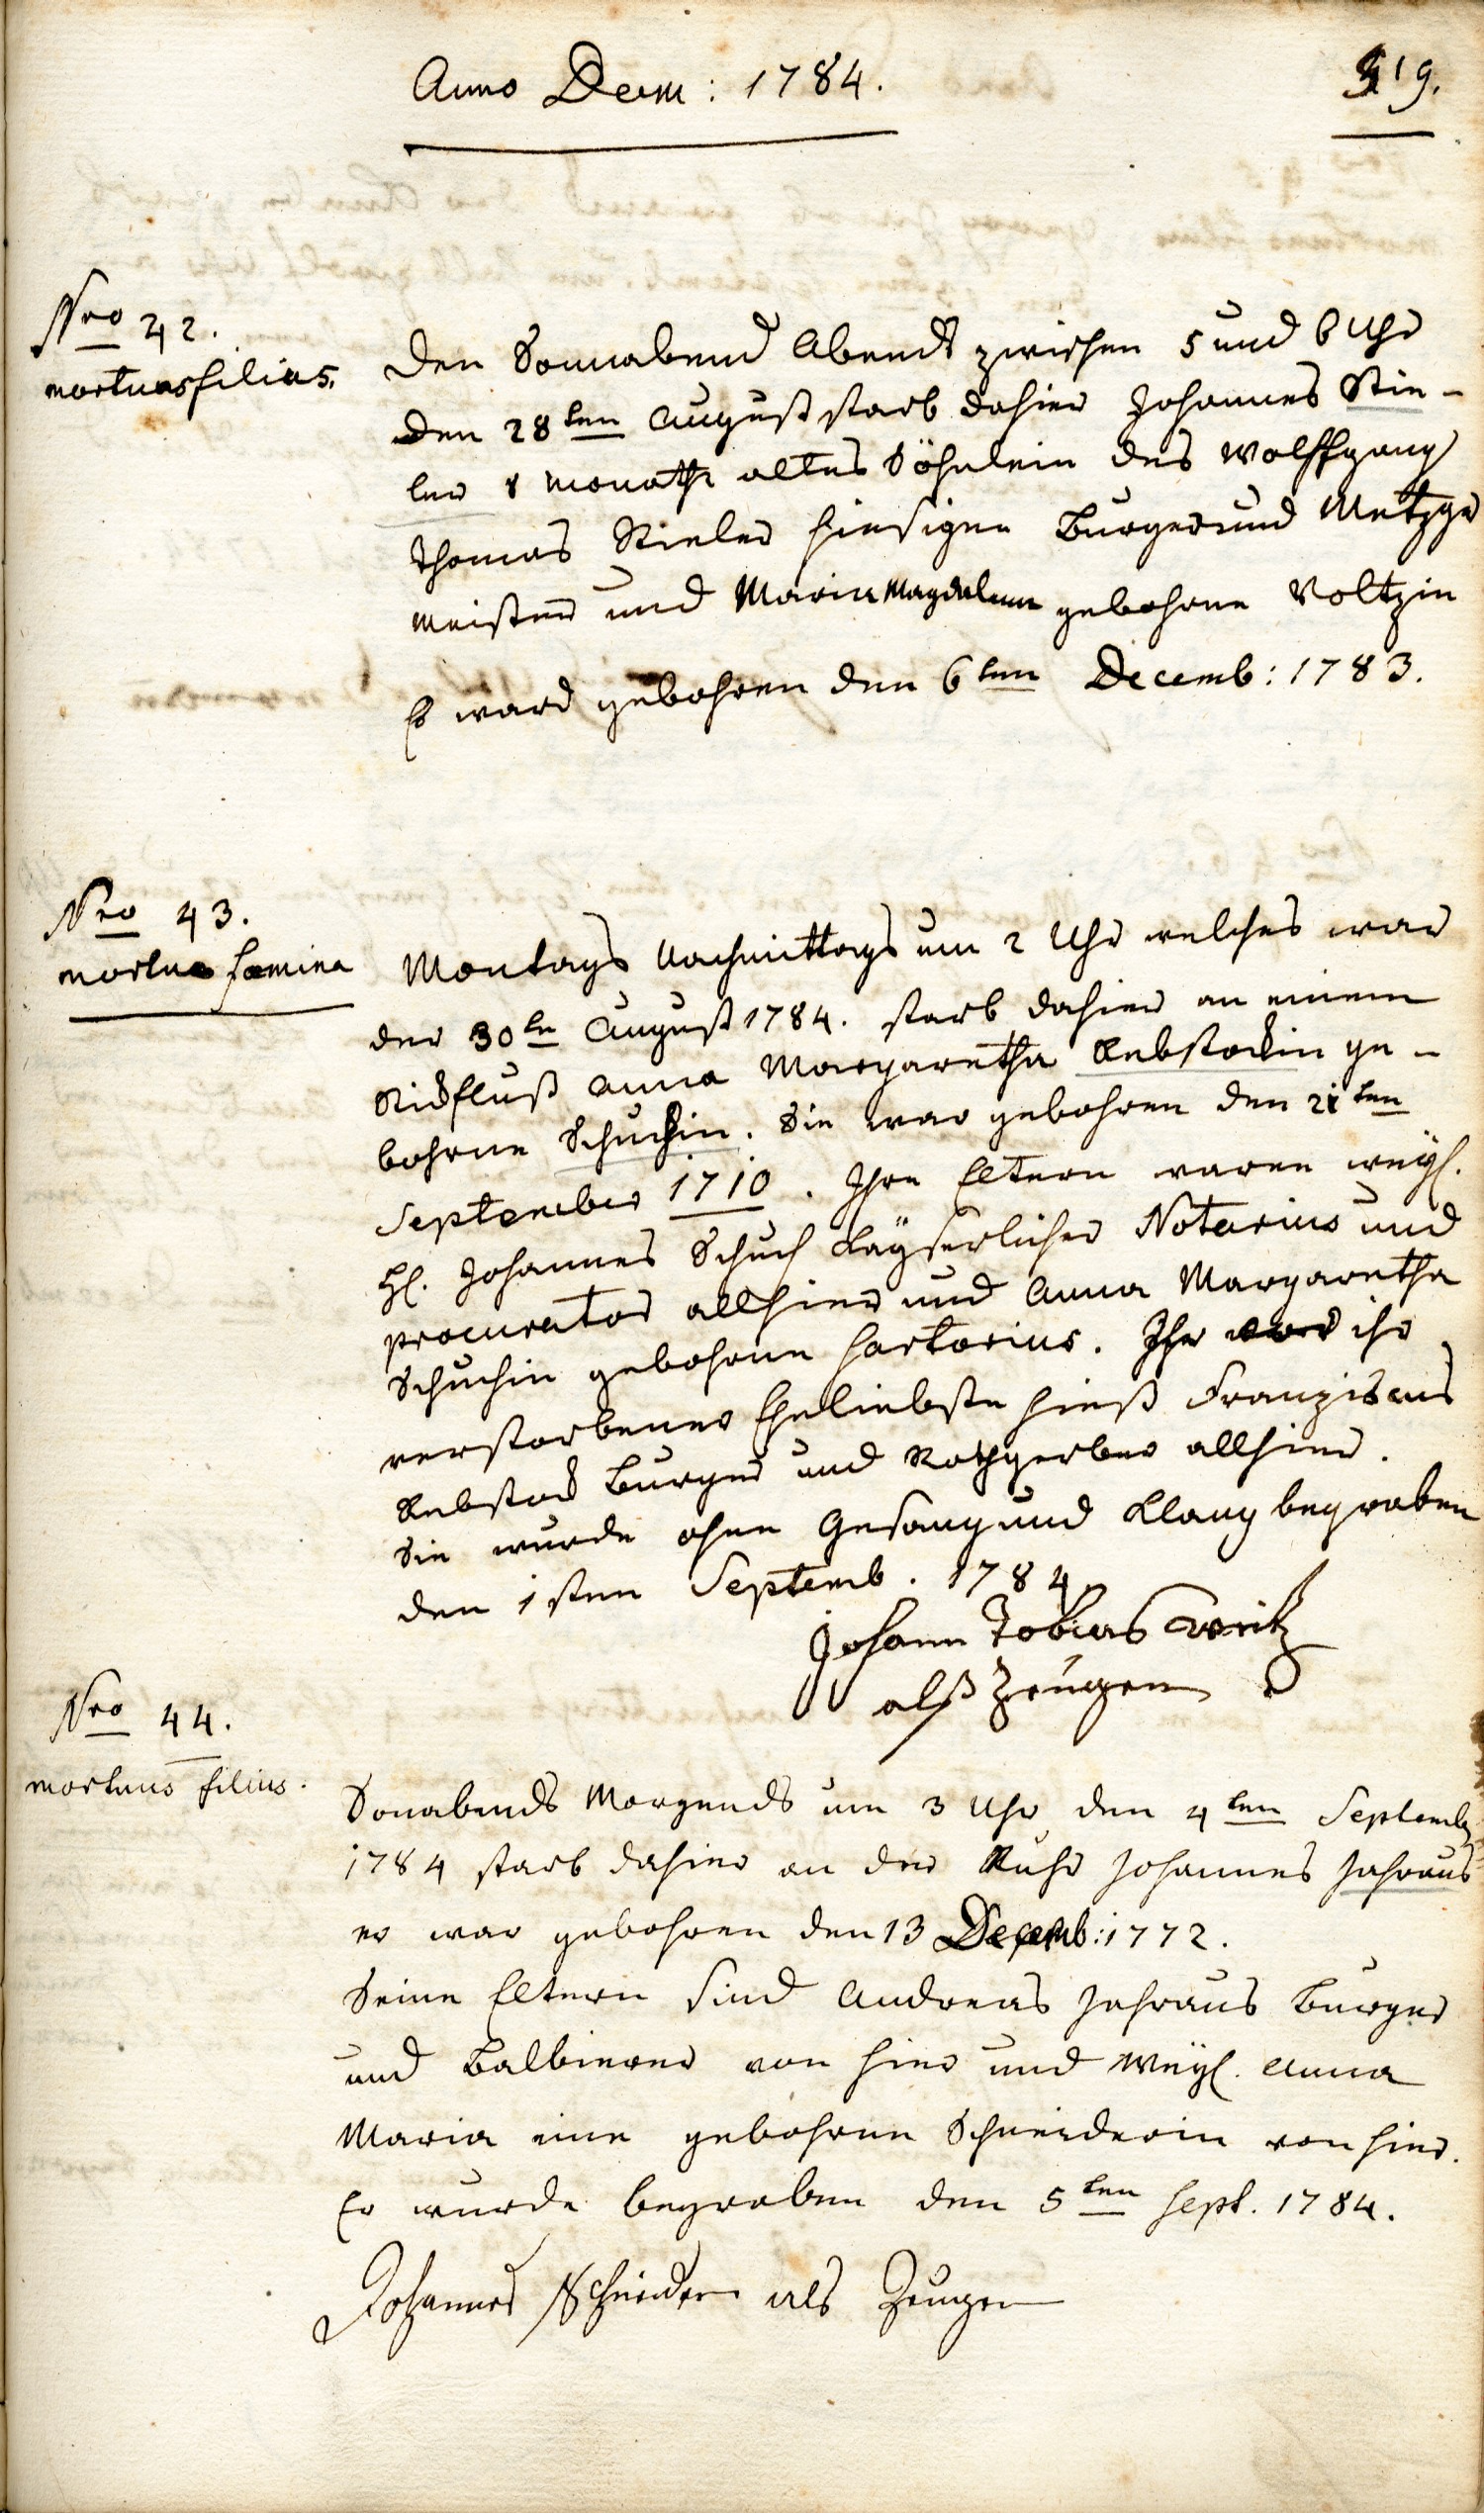 Anno Dom: 1784.
519.
Nro 42.
mortuus filius.
Den Sonnabend Abends zwischen 5 und 6 Uhr
den 28ten August starb dahier Johannes Stie-
ler 8 Monath altes Söhnlein des Wolffgang
Thomas Stieler hiesigen Burger und Metzger
meister und Maria Magdalena gebohrne Voltzin
Er ward gebohren den 6ten Decemb: 1783.
Nro 43.
mortua foemina
Montags Nachmittags um 2 Uhr welches war
der 30te August 1784. starb dahier an einem
Stickfluß Anna Margaretha Rebstockin ge-
bohrne Schuchin. Sie war gebohren den 21ten
September 1710. Ihre Eltern waren weyl.
H. Johannes Schuch Kayserlicher Notarius und
procurator allhier und Anna Margaretha
Schuchin gebohrne Sartorius. Ihr ihr
verstorbener Eheliebste hieß Franziscus
Rebstock Burger und Rothgerber allhier.
Sie wurde ohne Gesang und Klang begraben
den 1sten Septemb. 1784
Johann Tobias
alß Zeugen
Nro 44.
mortuus filius.
Sonabends Morgends um 3 Uhr den 4ten Septemb
1784 starb dahier an der Ruhr Johannes Jahraus
er war gebohren den 13 Decemb: 1772.
Seine Eltern sind Andreas Jahraus Burger
und Balbierer von hier und Weyl. Anna
Maria eine gebohrne Schneiderin von hier.
Er wurde begraben den 5ten Sept. 1784.
Johannes Schneider als Zeugen